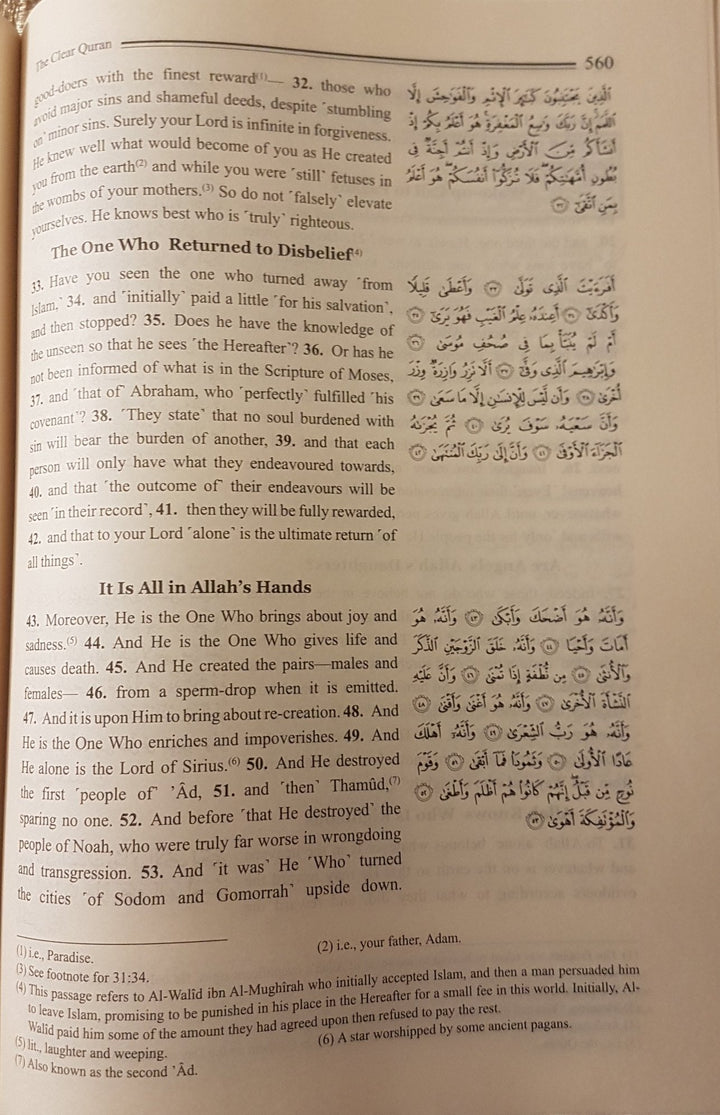 The Clear Quran
560
good-doers with the finest reward(1)— 32. those who
avoid major sins and shameful deeds, despite ˊstumbling
onˋ minor sins. Surely your Lord is infinite in forgiveness.
He knew well what would become of you as He created
you from the earth(2) and while you were ˊstillˋ fetuses in
the wombs of your mothers.(3) So do not ˊfalselyˋ elevate
yourselves. He knows best who is ˊtrulyˋ righteous.
ٱلَّذِينَ يَجْتَنِبُونَ كَبَٰٓئِرَ ٱلْإِثْمِ وَٱلْفَوَٰحِشَ إِلَّا
ٱللَّمَمَ ۚ إِنَّ رَبَّكَ وَٰسِعُ ٱلْمَغْفِرَةِ ۚ هُوَ أَعْلَمُ بِكُمْ إِذْ
أَنشَأَكُم مِّنَ ٱلْأَرْضِ وَإِذْ أَنتُمْ أَجِنَّةٌ فِى
بُطُونِ أُمَّهَٰتِكُمْ ۖ فَلَا تُزَكُّوٓا۟ أَنفُسَكُمْ ۖ هُوَ أَعْلَمُ
بِمَنِ ٱتَّقَىٰٓ ٣٢
The One Who Returned to Disbelief(4)
33. Have you seen the one who turned away ˊfrom
Islam,ˋ 34. and ˊinitiallyˋ paid a little ˊfor his salvationˋ,
and then stopped? 35. Does he have the knowledge of
the unseen so that he sees ˊthe Hereafterˋ? 36. Or has he
not been informed of what is in the Scripture of Moses,
37. and ˊthat ofˋ Abraham, who ˊperfectlyˋ fulfilled ˊhis
covenantˋ? 38. ˊThey stateˋ that no soul burdened with
sin will bear the burden of another, 39. and that each
person will only have what they endeavoured towards,
40. and that ˊthe outcome ofˋ their endeavours will be
seen ˊin their recordˋ, 41. then they will be fully rewarded,
42. and that to your Lord ˊaloneˋ is the ultimate return ˊof
all thingsˋ.
أَفَرَءَيْتَ ٱلَّذِى تَوَلَّىٰ ٣٣ وَأَعْطَىٰ قَلِيلًا
وَأَكْدَىٰٓ ٣٤ أَعِندَهُۥ عِلْمُ ٱلْغَيْبِ فَهُوَ يَرَىٰٓ ٣٥
أَمْ لَمْ يُنَبَّأْ بِمَا فِى صُحُفِ مُوسَىٰ ٣٦
وَإِبْرَٰهِيمَ ٱلَّذِى وَفَّىٰٓ ٣٧ أَلَّا تَزِرُ وَازِرَةٌ وِزْرَ
أُخْرَىٰ ٣٨ وَأَن لَّيْسَ لِلْإِنسَٰنِ إِلَّا مَا سَعَىٰ ٣٩
وَأَنَّ سَعْيَهُۥ سَوْفَ يُرَىٰ ٤٠ ثُمَّ يُجْزَىٰهُ
ٱلْجَزَآءَ ٱلْأَوْفَىٰ ٤١ وَأَنَّ إِلَىٰ رَبِّكَ ٱلْمُنتَهَىٰ ٤٢
It Is All in Allah's Hands
43. Moreover, He is the One Who brings about joy and
sadness.(5) 44. And He is the One Who gives life and
causes death. 45. And He created the pairs—males and
females— 46. from a sperm-drop when it is emitted.
47. And it is upon Him to bring about re-creation. 48. And
He is the One Who enriches and impoverishes. 49. And
He alone is the Lord of Sirius.(6) 50. And He destroyed
the first ˊpeople ofˋ ’Âd, 51. and ˊthenˋ Thamûd,(7)
sparing no one. 52. And before ˊthat He destroyedˋ the
people of Noah, who were truly far worse in wrongdoing
and transgression. 53. And ˊit wasˋ He ˊWhoˋ turned
the cities ˊof Sodom and Gomorrahˋ upside down.
وَأَنَّهُۥ هُوَ أَضْحَكَ وَأَبْكَىٰ ٤٣ وَأَنَّهُۥ هُوَ
أَمَاتَ وَأَحْيَا ٤٤ وَأَنَّهُۥ خَلَقَ ٱلزَّوْجَيْنِ ٱلذَّكَرَ
وَٱلْأُنثَىٰ ٤٥ مِن نُّطْفَةٍ إِذَا تُمْنَىٰ ٤٦ وَأَنَّ عَلَيْهِ
ٱلنَّشْأَةَ ٱلْأُخْرَىٰ ٤٧ وَأَنَّهُۥ هُوَ أَغْنَىٰ وَأَقْنَىٰ ٤٨
وَأَنَّهُۥ هُوَ رَبُّ ٱلشِّعْرَىٰ ٤٩ وَأَنَّهُۥٓ أَهْلَكَ
عَادًا ٱلْأُولَىٰ ٥٠ وَثَمُودَا۟ فَمَآ أَبْقَىٰ ٥١ وَقَوْمَ
نُوحٍ مِّن قَبْلُ ۖ إِنَّهُمْ كَانُوا۟ هُمْ أَظْلَمَ وَأَطْغَىٰ ٥٢
وَٱلْمُؤْتَفِكَةَ أَهْوَىٰ ٥٣
(1) i.e., Paradise.
(2) i.e., your father, Adam.
(3) See footnote for 31:34.
(4) This passage refers to Al-Walîd ibn Al-Mughîrah who initially accepted Islam, and then a man persuaded him
to leave Islam, promising to be punished in his place in the Hereafter for a small fee in this world. Initially, Al-
Walîd paid him some of the amount they had agreed upon then refused to pay the rest.
(5) lit., laughter and weeping.
(6) A star worshipped by some ancient pagans.
(7) Also known as the second ’Âd.